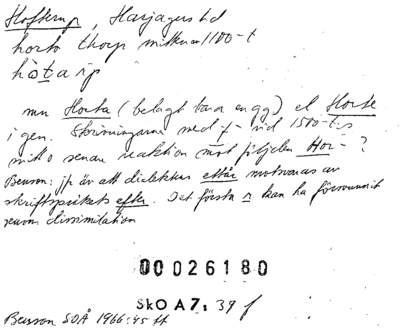 Hofterup, Harjagers hd
horto thorp mitten av 1100-t
hòtarp
mn Horta (belagt bara en gg) el Horte
i gen. Skrivningarna med f vid 1500-t:s
mitt o senare reaktion mot Hor- ?
Benson: jr är att dialektens ettår motsvaras av
skriftspråkets efter. Det första r kan ha försvunnit
genom dissimilation
00026180
SkO A7, 39 f
Benson SOÅ 1966:45 ff